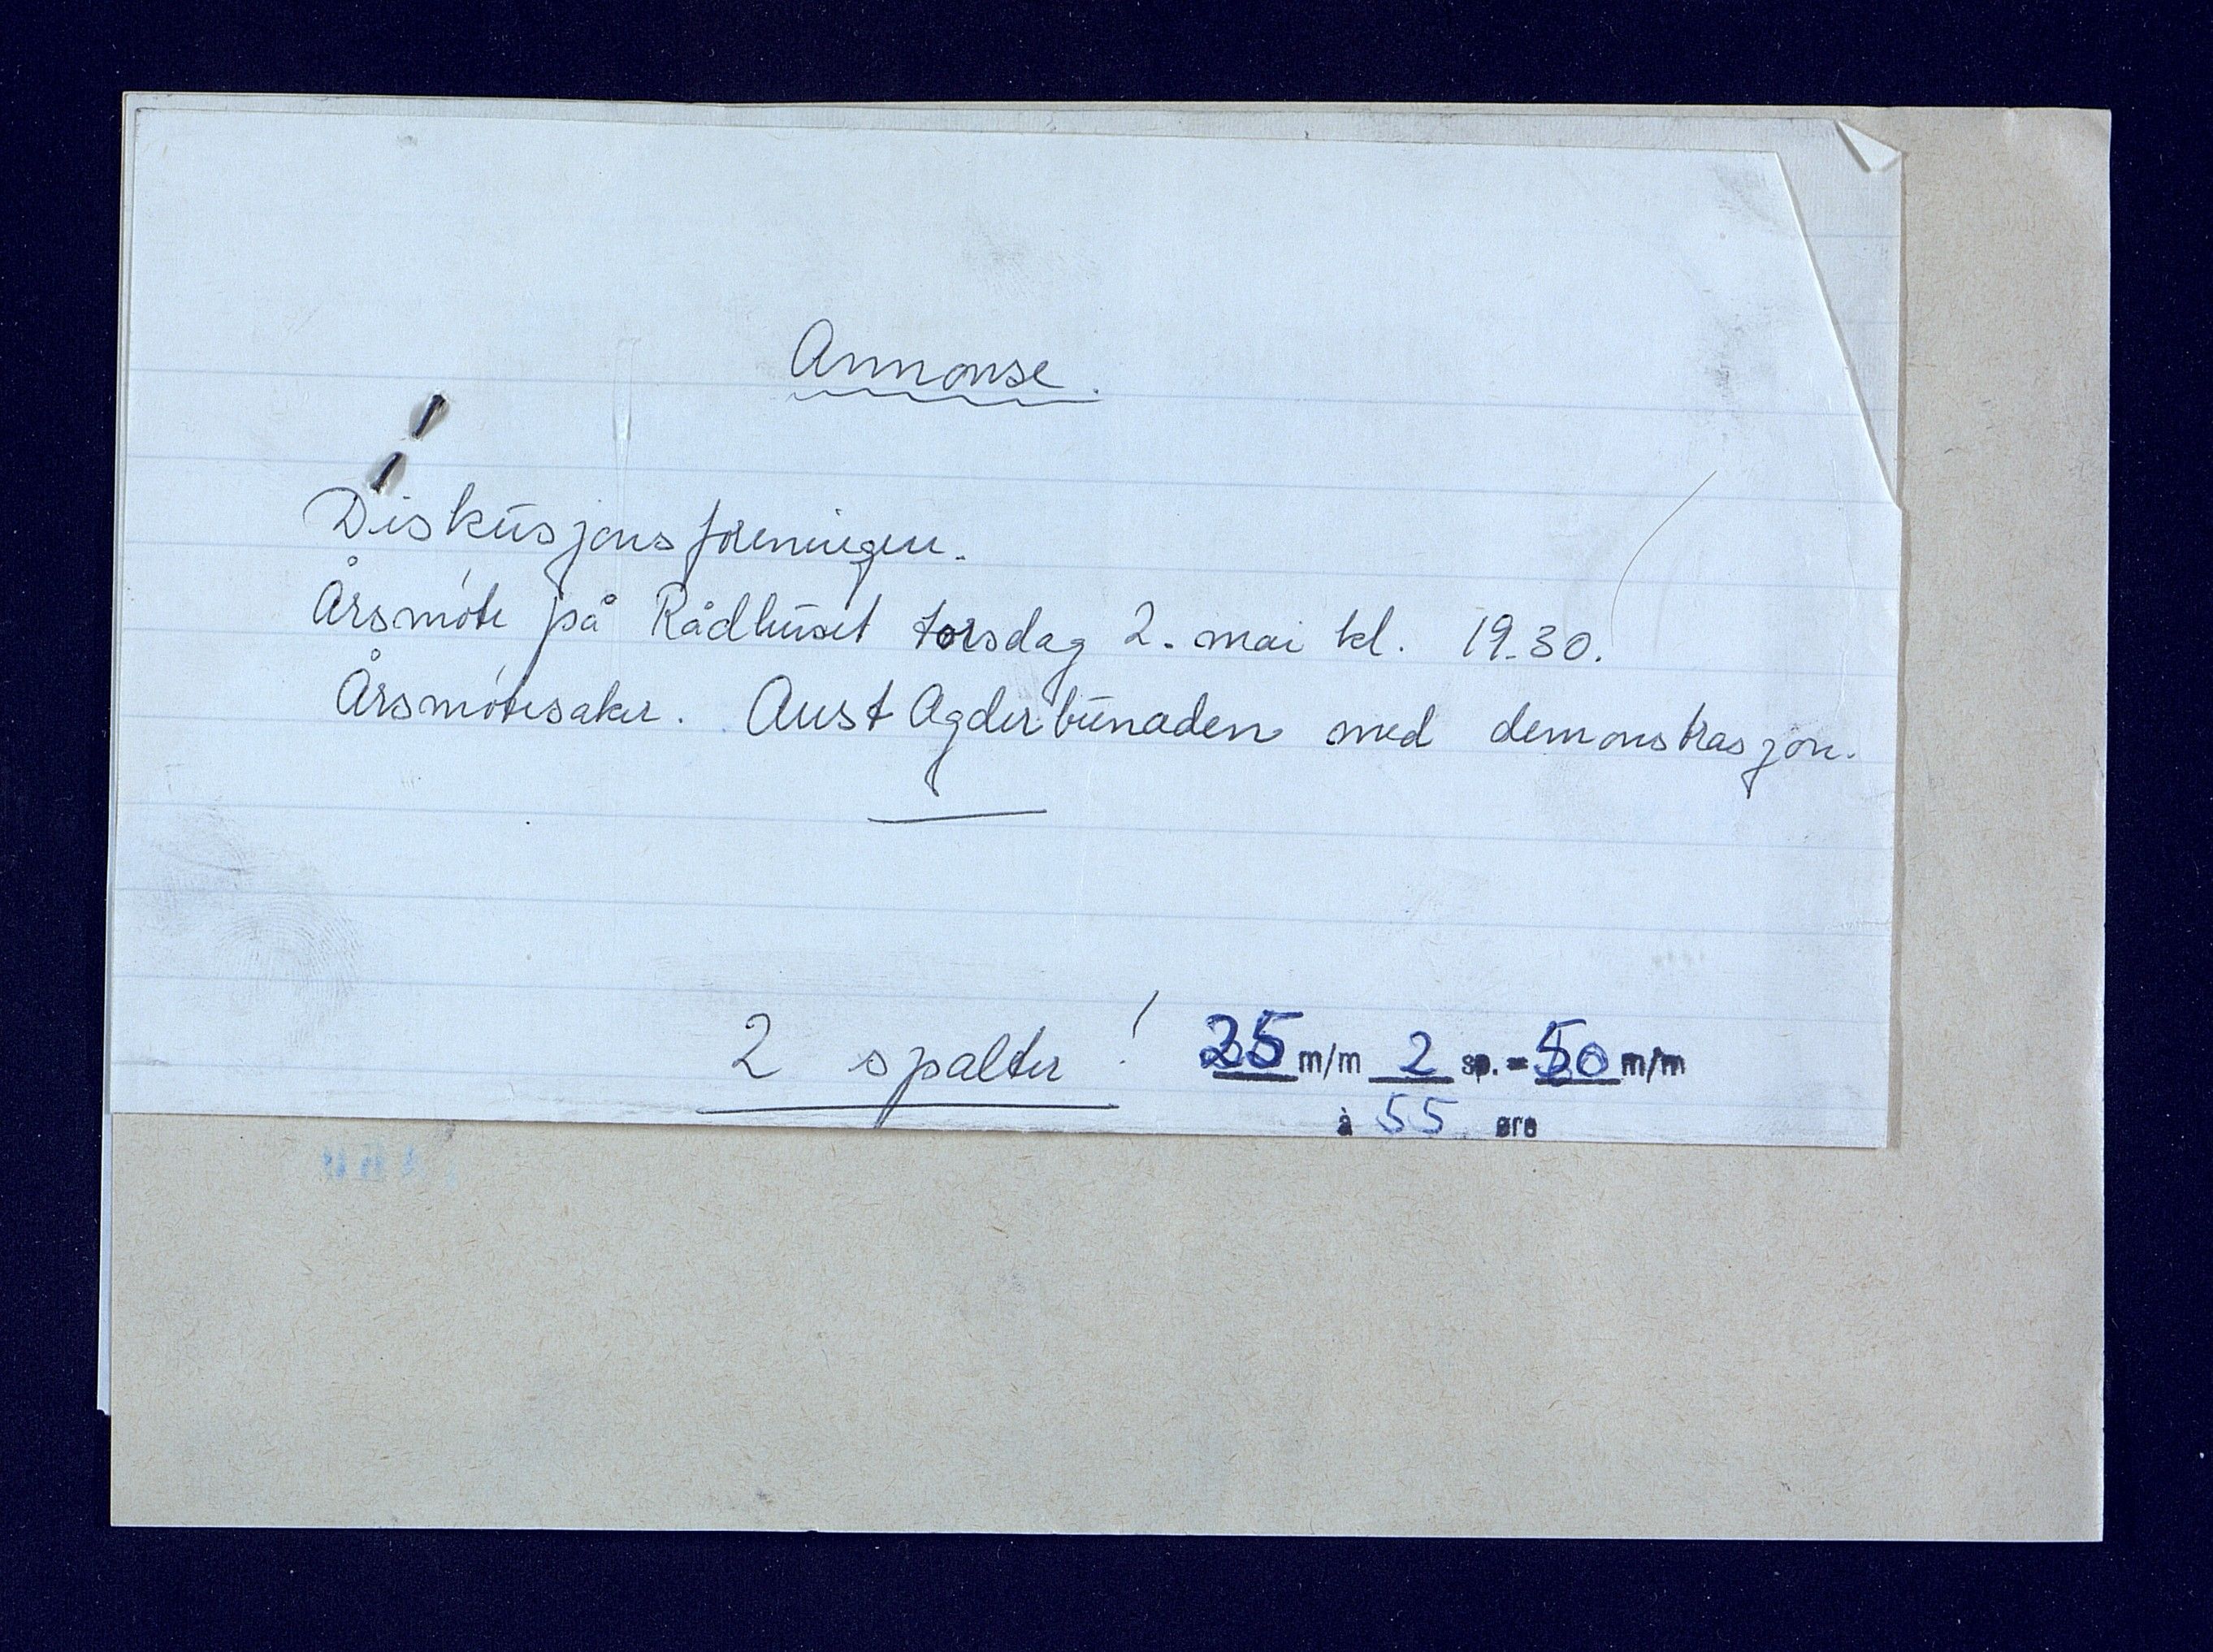 Annonse.
Diskusjonsforeningen.
Årsmöte på Rådhuset torsdag 2. mai kl. 19.30.
Årsmötesaker. Aust Agderbunaden med demonstrasjon.
2 spalter! 25 m/m 2 sp. = 50 m/m
à 55 øre